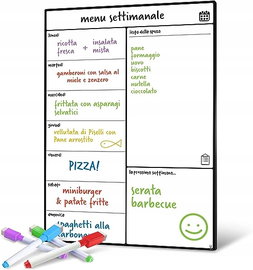 menu settimanale
lunedì
ricotta fresca + insalata mista
martedì
gamberoni con salsa al
miele e zenzero
mercoledì
frittata con asparagi
selvatici
giovedì
vellutata di Piselli con
Pane arrostito
venerdì
PIZZA!
sabato
miniburger
& patate fritte
domenica
spaghetti alla
carbonara
lista della spesa
pane
formaggio
uova
biscotti
carne
nutella
cioccolato
la prossima settimana...
serata
barbecue